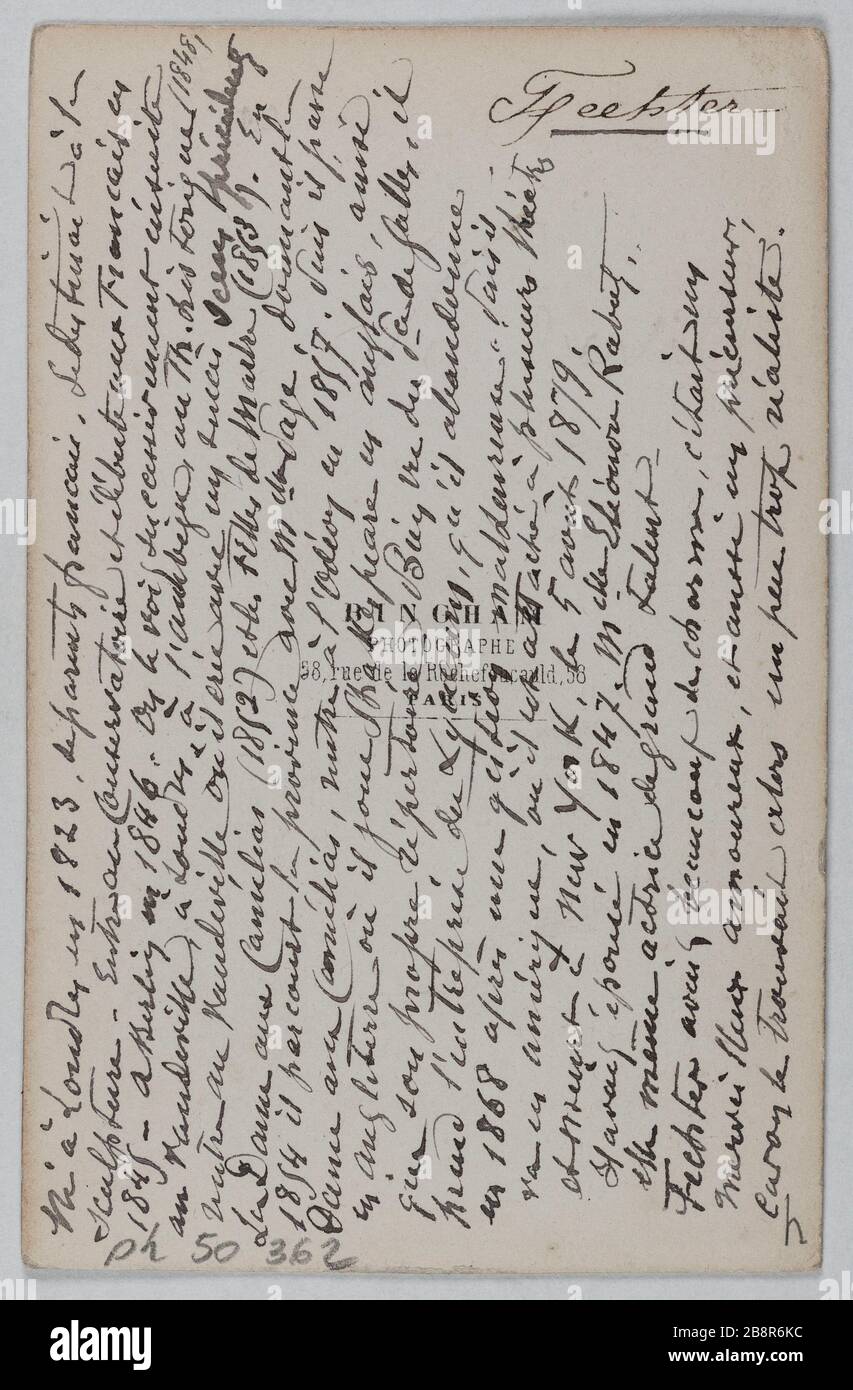 Fechter
Né à Londres en 1823, de parents français, se destinait à la
sculpture - Entre au Conservatoire et débute aux Français en
184 - à Berlin en 1846. On le voit successivement ensuite
au Vaudeville, à Londres, à l'ambigu, au Th. historique (1848,
entre au Vaudeville où il crée avec un succès
La Dame aux Camélias (1852) et les Filles de Marbre (1853). En
1854 il parcourt la province avec Me donnant la
Dame aux Camélias, rentre à l'Odéon en 1857. Puis il passe
en angleterre où il joue Shakespeare en anglais, aussi
que son propre répertoire Ruy
prend l'entreprise du Lyceum, qu'il abandonne
en 1868 après une gestion malheureuse. Puis il
va en amérique, où il est attaché à plusieurs théâtres
et meurt à New York, le 5 août 1879.
Il avait épousé en 1847. Melle Eléonore Rabut,
elle même actrice de grand talent -
Fechter avait beaucoup de charme, c'était un
merveilleux amoureux, et aussi un précurseur,
le trouvait alors un peu trop réaliste.
BINGHAM
PHOTOGRAPHE
58, rue de la Rochefoucauld, 58
PARIS
ph 50 362
alamy
Image ID: 2B8R6KC
www.alamy.com